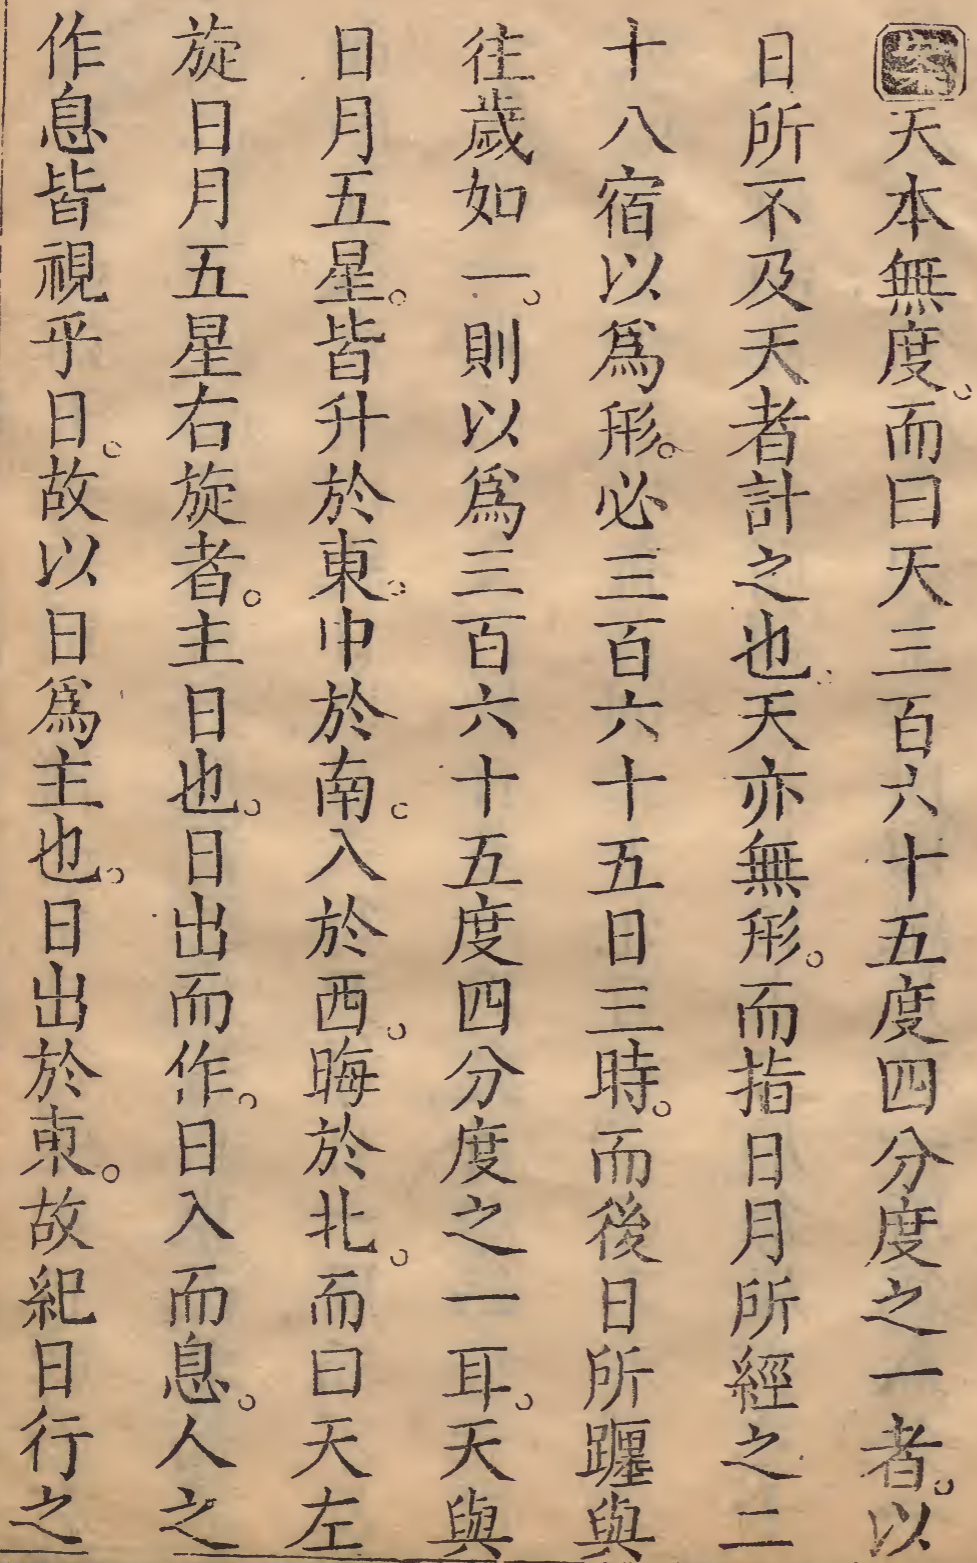 案天本無度。而曰天三百六十五度四分度之一者。以
日所不及天者計之也。天亦無形。而指日月所經之二
十八宿以爲形。必三百六十五日三時。而後日所躔與
往歲如一。則以爲三百六十五度四分度之一耳。天與
日月五星。皆升於東。中於南。入於西。晦於北。而曰天左
旋日月五星右旋者。主日也。日出而作。日入而息。人之
作息皆視乎日。故以日爲主也。日出於東。故紀日行之